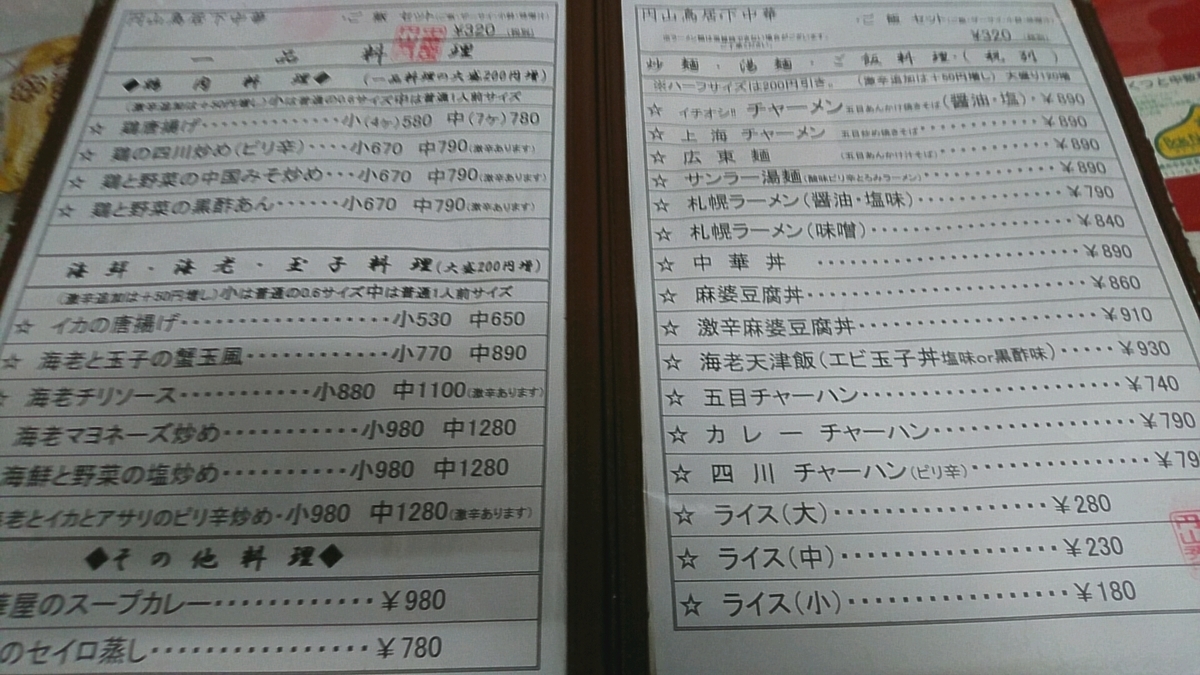 円山鳥居下中華 ご飯セット
¥320
一品料理
◆鶏肉料理◆ (一品料理の大盛200円増)
(激辛追加は+50円増し)小は普通の0.6サイズ中は普通1人前サイズ
☆ 鶏唐揚げ・・・・・・・・・・・・・小(4ヶ)580 中(7ヶ)780
☆ 鶏の四川炒め(ピリ辛)・・・・小670 中790(激辛あります)
☆ 鶏と野菜の中国みそ炒め・・・小670 中790(激辛あります)
☆ 鶏と野菜の黒酢あん・・・・・・小670 中790(激辛あります)
海鮮・海老・玉子料理(大盛200円増)
(激辛追加は+50円増し)小は普通の0.6サイズ中は普通1人前サイズ
☆ イカの唐揚げ・・・・・・・・・・・・・・・・小530 中650
☆ 海老と玉子の蟹玉風・・・・・・・・・・・・小770 中890
☆ 海老チリソース・・・・・・・・・・・小880 中1100(激辛あります)
海老マヨネーズ炒め・・・・・・・・・・・小980 中1280
海鮮と野菜の塩炒め・・・・・・・・・・小980 中1280
老とイカとアサリのピリ辛炒め・小980 中1280(激辛あります)
◆その他料理◆
屋のスープカレー・・・・・・・・・・・・¥980
のセイロ蒸し・・・・・・・・・・・・・・・・¥780
円山鳥居下中華 ご飯セット
¥320
炒麺・湯麺・ご飯料理・(税別)
※ハーフサイズは200円引き。 (激辛追加は+50円増し) 大盛り120増
☆ イチオシ!! チャーメン 五目あんかけ焼きそば(醤油・塩)・¥890
☆ 上海チャーメン 五目炒め焼きそば・・・・・・・・・・・¥890
☆ 広東麺 (五目あんかけ汁そば)・・・・・・・・・・・¥890
☆ サンラー湯麺(酸味ピリ辛とろみラーメン)・・・・・・・・・・・¥890
☆ 札幌ラーメン(醤油・塩味)・・・・・・・・・・・・¥790
☆ 札幌ラーメン(味噌)・・・・・・・・・・・・・・・・¥840
☆ 中華丼 ・・・・・・・・・・・・・・・・・・・¥890
☆ 麻婆豆腐丼・・・・・・・・・・・・・・・・・・・・・¥860
☆ 激辛麻婆豆腐丼・・・・・・・・・・・・・・・・・¥910
☆ 海老天津飯(エビ玉子丼塩味or黒酢味)・・・・・¥930
☆ 五目チャーハン・・・・・・・・・・・・・・・・・・¥740
☆ カレーチャーハン・・・・・・・・・・・・・・・¥790
☆ 四川チャーハン(ピリ辛)・・・・・・・・・・・・・¥79
☆ ライス(大)・・・・・・・・・・・・・・・・¥280
☆ ライス(中)・・・・・・・・・・・・・・・・¥230
☆ ライス(小)・・・・・・・・・・・・・・・・¥180